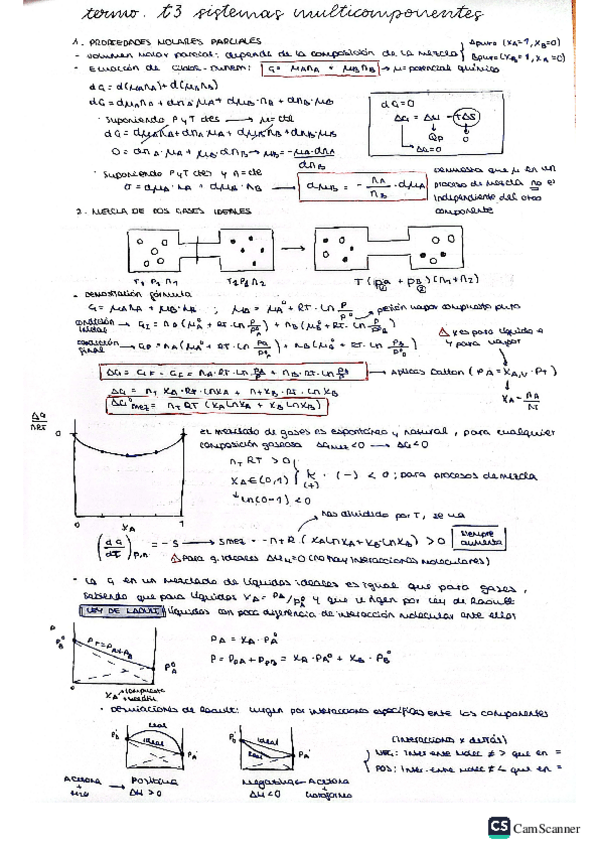 termo. t3 sistemas multicomponentes
1. PROPIEDADES MOLARES PARCIALES
- volumen molar parcial: depende de la composición de la mezcla { Apuro (xA=1, xB=0)
Bpuro (xB=1, xA=0)
G = μA nA + μB nB → μ = potencial químico
dG = d(μA nA) + d(μB nB)
dG = dμA nA + dnA μA + dμB nB + dnB μB
· Suponiendo P y T ctes → μ = ctte
dG = dμA nA + dnA μA + dμB nB + dnB μB
0 = dnA μA + μB dnB → μB = -μA dnA / dnB
· Suponiendo P y T ctes y n = cte
0 = dμA nA + dμB nB → dμB = - nA/nB · dμA
dG = 0
ΔG = ΔH - TΔS
Qp 0
ΔG = 0
Demuestra que μ en un
proceso de mezcla no es
independiente del otro
componente
2. MEZCLA DE DOS GASES IDEALES
T1 P1 n1 T2 P2 n2 T (PA + PB) (n1 + n2)
- Demostración fórmula
G = μA nA + μB nB ; μA = μA° + RT · Ln P/P° → presión vapor compuesto puro
condición inicial → GI = nA (μA° + RT · Ln P/P°) + nB (μB° + RT · Ln P/P°)
condición final → GF = nA (μA° + RT · Ln PA/P°) + nB (μB° + RT · Ln PB/P°)
⚠ x es para líquido e
y para vapor
ΔG = GF - GI = nA · RT · Ln PA/P + nB · RT · Ln PB/P → Aplicas Dalton (PA = xA,v · PT)
ΔG = nT xA · RT · Ln xA + nT xB · RT · Ln xB
xA = nA/nT
ΔG°mez = nT RT (xA Ln xA + xB Ln xB)
ΔG/nRT
0
0 xA 1
el mezclado de gases es espontáneo y natural, para cualquier
composición gaseosa ΔGmez < 0 → ΔG < 0
nT RT > 0
xA ∈ (0,1)
Ln (0-1) < 0
(+) · (-) < 0 ; para procesos de mezcla
→ has dividido por T, se va
(dG/dT) P,n = -S → Smez = -nT R (xA Ln xA + xB Ln xB) > 0 siempre aumenta
⚠ Para g. ideales ΔHm = 0 (no hay interacciones moleculares)
· La G en un mezclado de líquidos ideales es igual que para gases,
sabiendo que para líquidos xA = PA/PA° y que se rigen por Ley de Raoult
LEY DE RAOULT líquidos con poca diferencia de interacción molecular entre ellos
P
PB°
PT = PA + PB
PA°
xA
PA = xA · PA°
P = PA + PB = xA · PA° + xB · PB°
· Desviaciones de Raoult: surgen por interacciones específicas entre los componentes
real
ideal
PB° PA°
ideal
real
PB° PA°
(interacciones x detrás)
NEG: inter entre molec ≠ > que en =
POS: inter entre molec ≠ < que en =
Acetona → Positiva
ΔH > 0
Negativa ← Acetona
ΔH < 0 + cloroformo
CS CamScanner